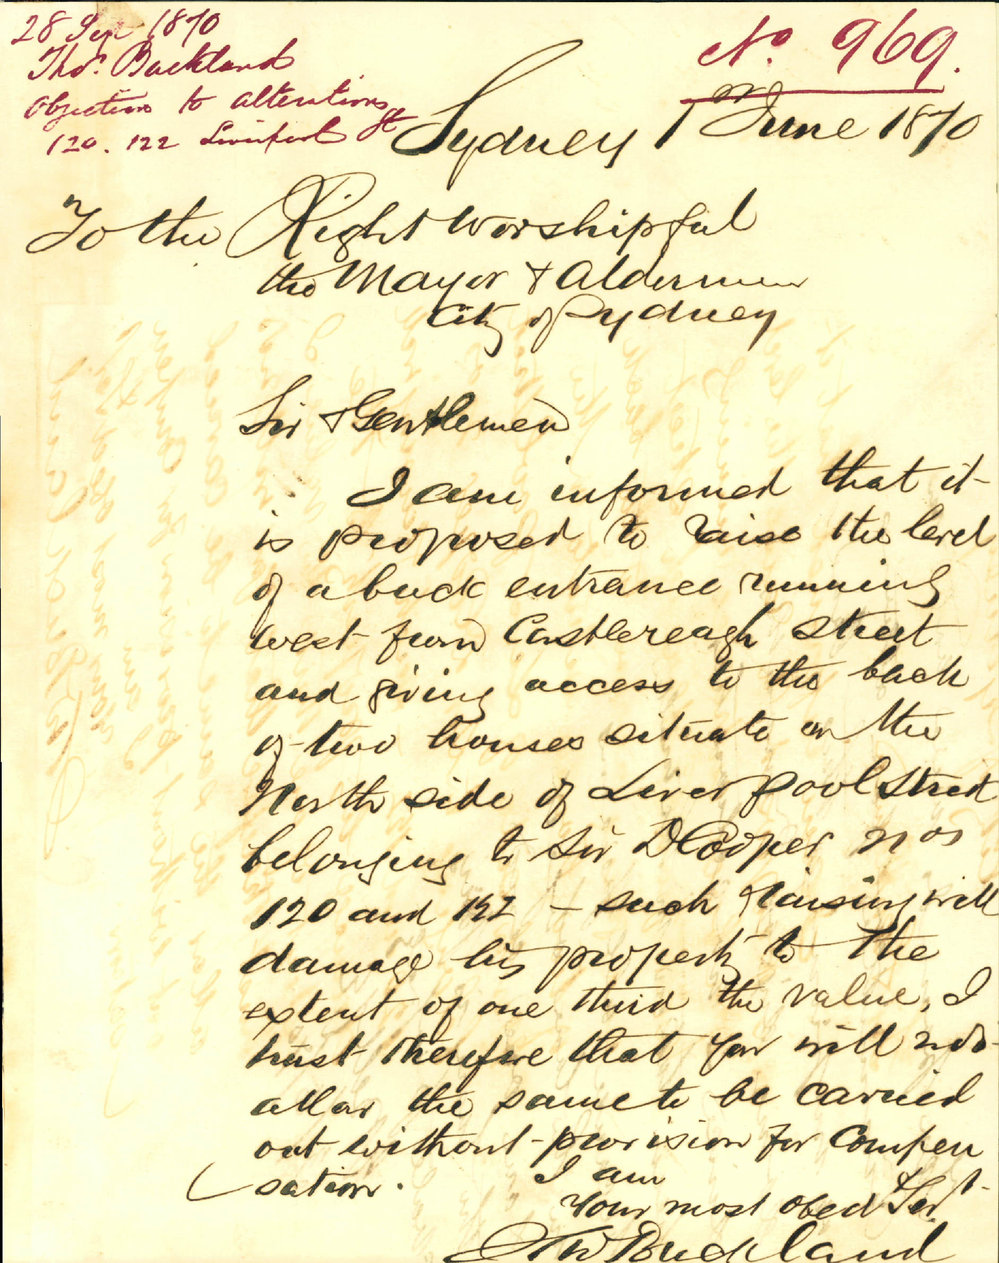 28 Sep 1870
Thos. Buckland
Objections to alterations
120. 122 Liverpool St
No. 969.
Sydney 1 June 1870
To the Right Worshipful
the Mayor & Aldermen
City of Sydney
Sir & Gentlemen
I am informed that it
is proposed to raise the level
of a back entrance running
west from Castlereagh street
and giving access to the back
of two houses situate on the
North side of Liverpool Street
belonging to Sir D Cooper nos
120 and 122 – such raising will
damage his property to the
extent of one third the value, I
trust therefore that you will not
allow the same to be carried
out without provision for compen
sation.
I am
Your most obed Servt.
Thos Buckland